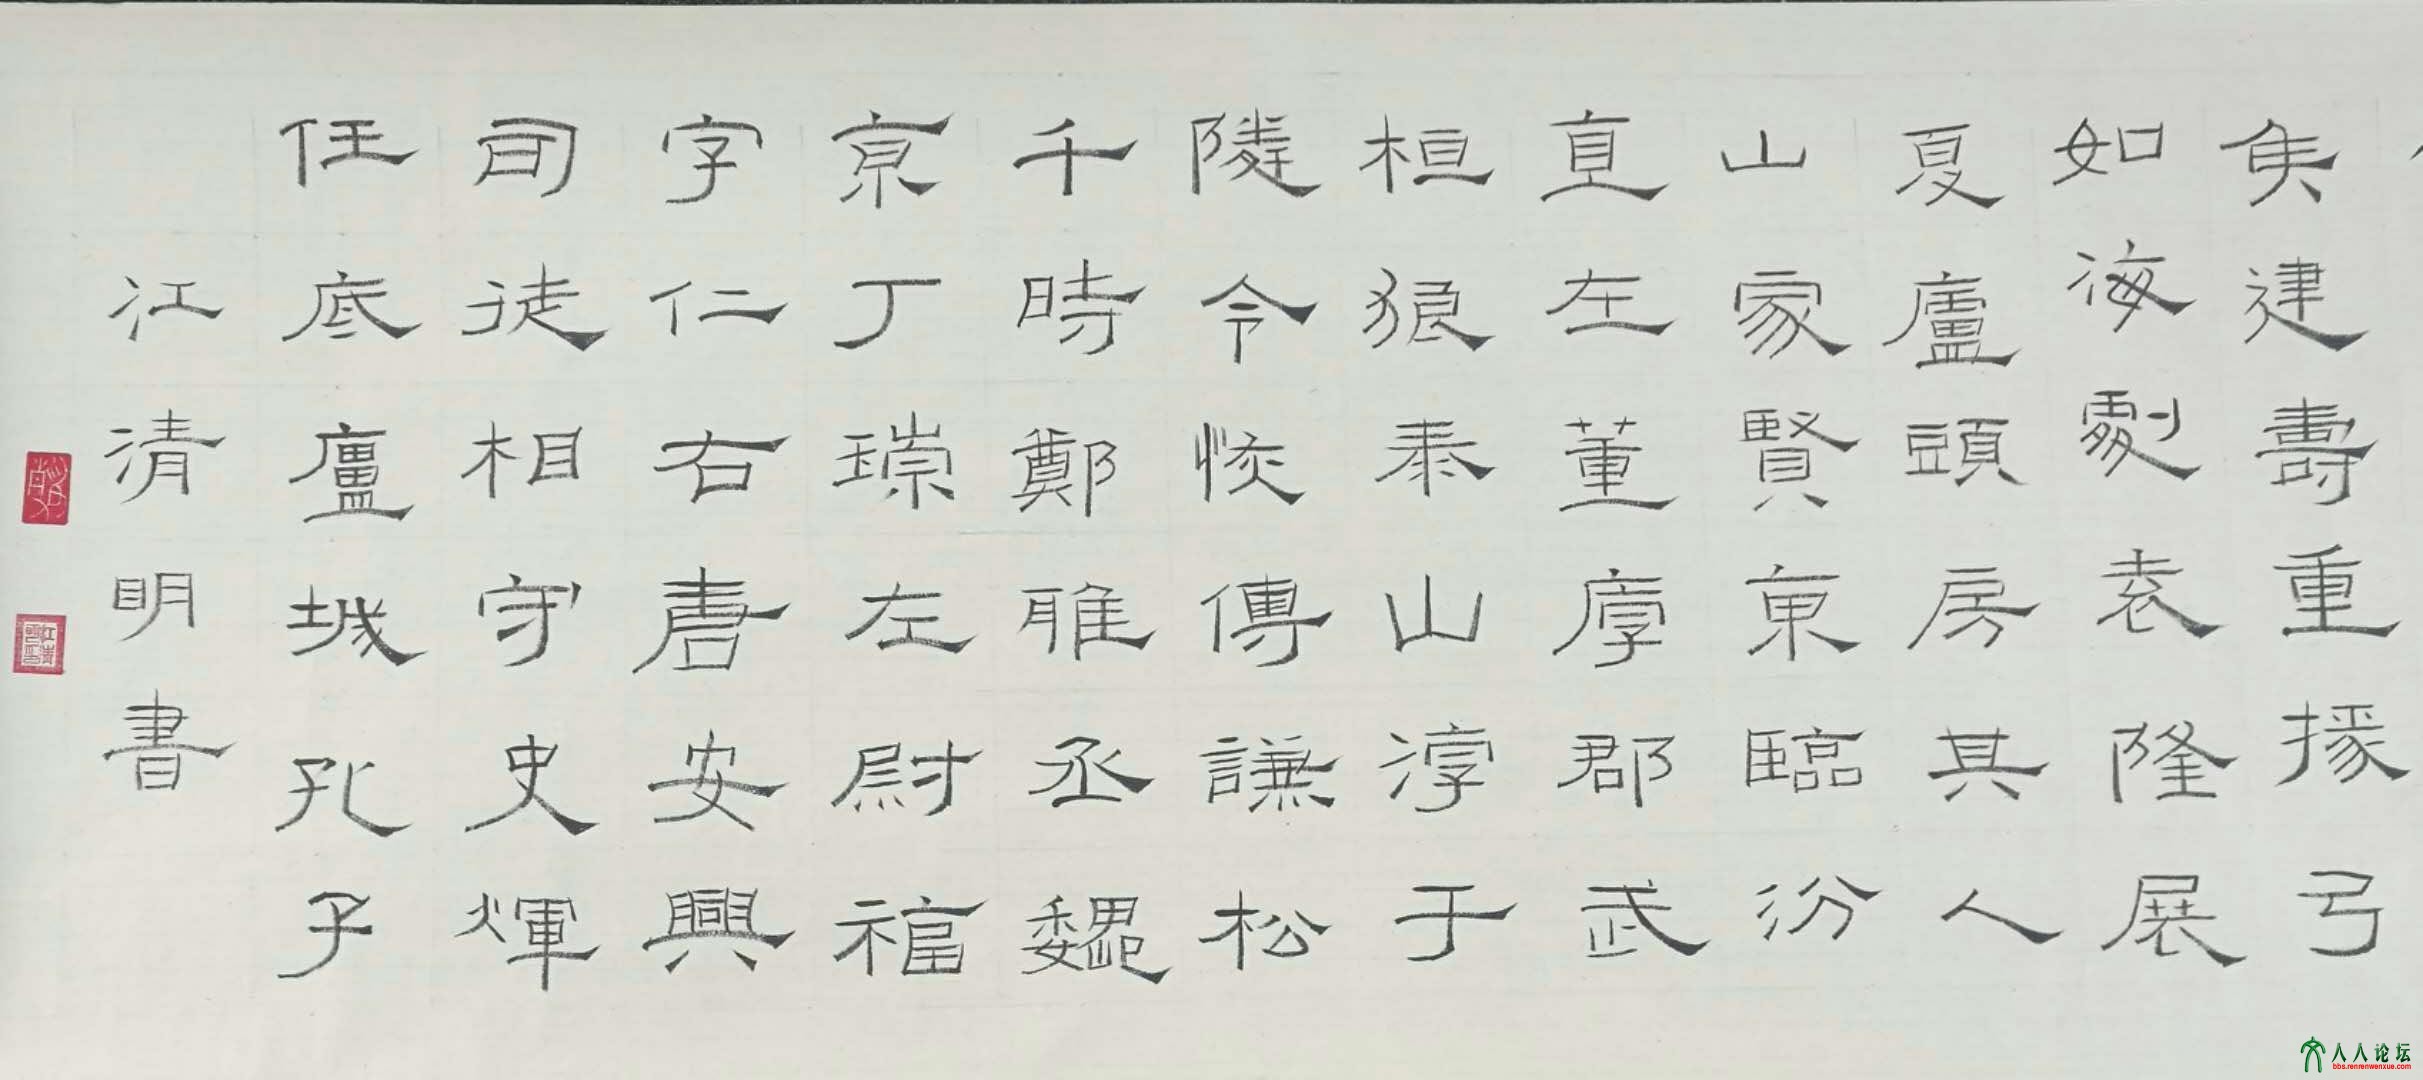 矦建壽重掾弓
如海劇袁隆展
夏廬頭房其人
山家賢東臨汾
直左董郡武
桓狼泰山淳于
隣令恢傅謙松
千時鄭雅丞魏
京丁琮左尉福
字仁右唐安興
司徒相守史煇
任底廬城孔子
江清明書
人人论坛
bbs.renrenwenxue.com